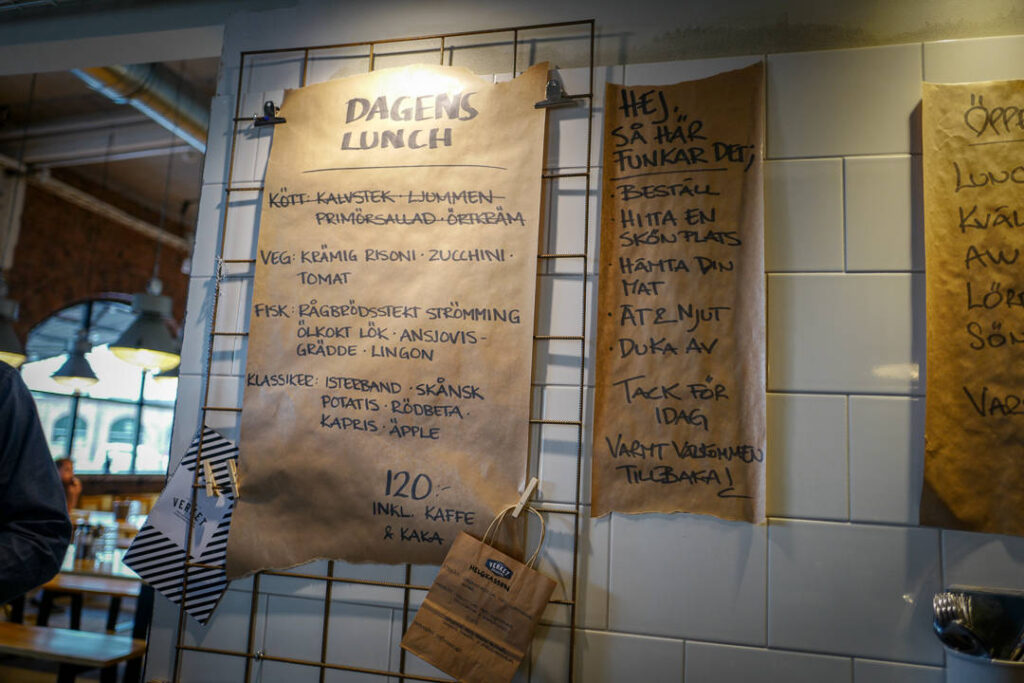 DAGENS
LUNCH
KÖTT: KALVSTEK LJUMMEN
PRIMÖRSALLAD · ÖRTKRÄM
VEG: KRÄMIG RISONI · ZUCCHINI ·
TOMAT
FISK: RÅGBRÖDSSTEKT STRÖMMING
ÖLKOKT LÖK · ANSJOVIS-
GRÄDDE · LINGON
KLASSIKER: ISTERBAND · SKÅNSK
POTATIS · RÖDBETA ·
KAPRIS · ÄPPLE
120:-
INKL. KAFFE
& KAKA
VERKET
VERKET
HELGKASSEN
HEJ.
SÅ HÄR
FUNKAR DET;
· BESTÄLL
· HITTA EN
SKÖN PLATS
· HÄMTA DIN
MAT
· ÄT & NJUT
· DUKA AV
TACK FÖR
IDAG
VARMT VÄLKOMMEN
TILLBAKA!
ÖPPE
LUNC
KVÄL
AW
LÖR
SÖN
VAR